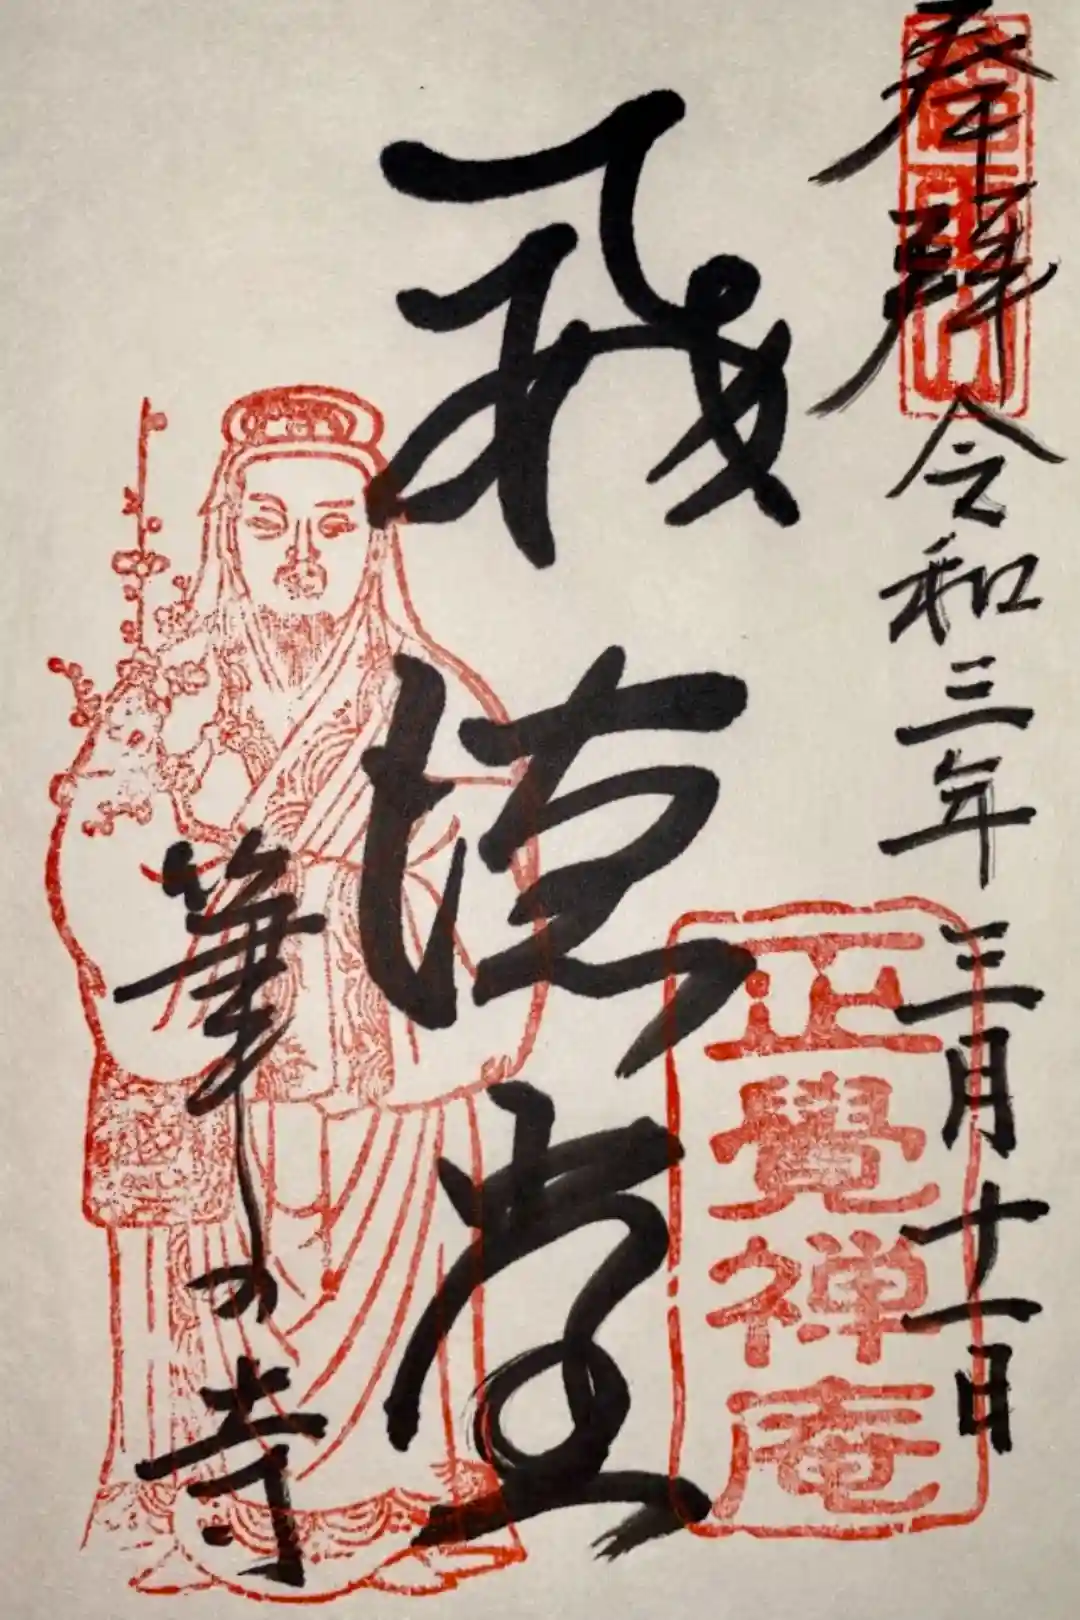 奉拝
令和三年三月十一日
徳堂
筆の寺
正覺禅庵